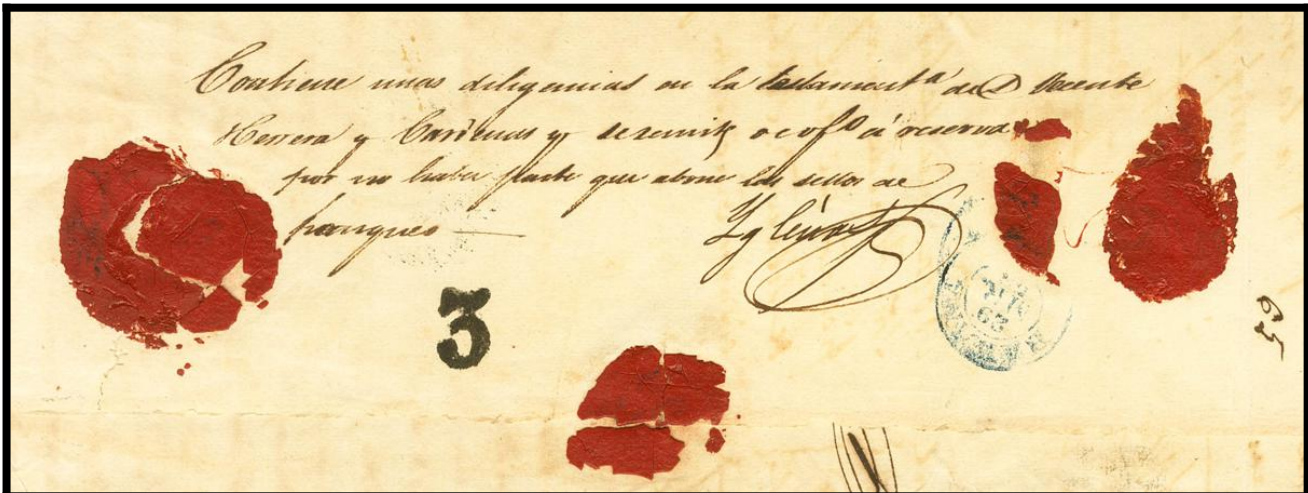 Contiene unas diligencias en la testamentª de D Vicente
Herrera y Cardenas y se remite de ofº á reserva
por no haber parte que abone los sellos de
franqueo
Yglesias
3
59